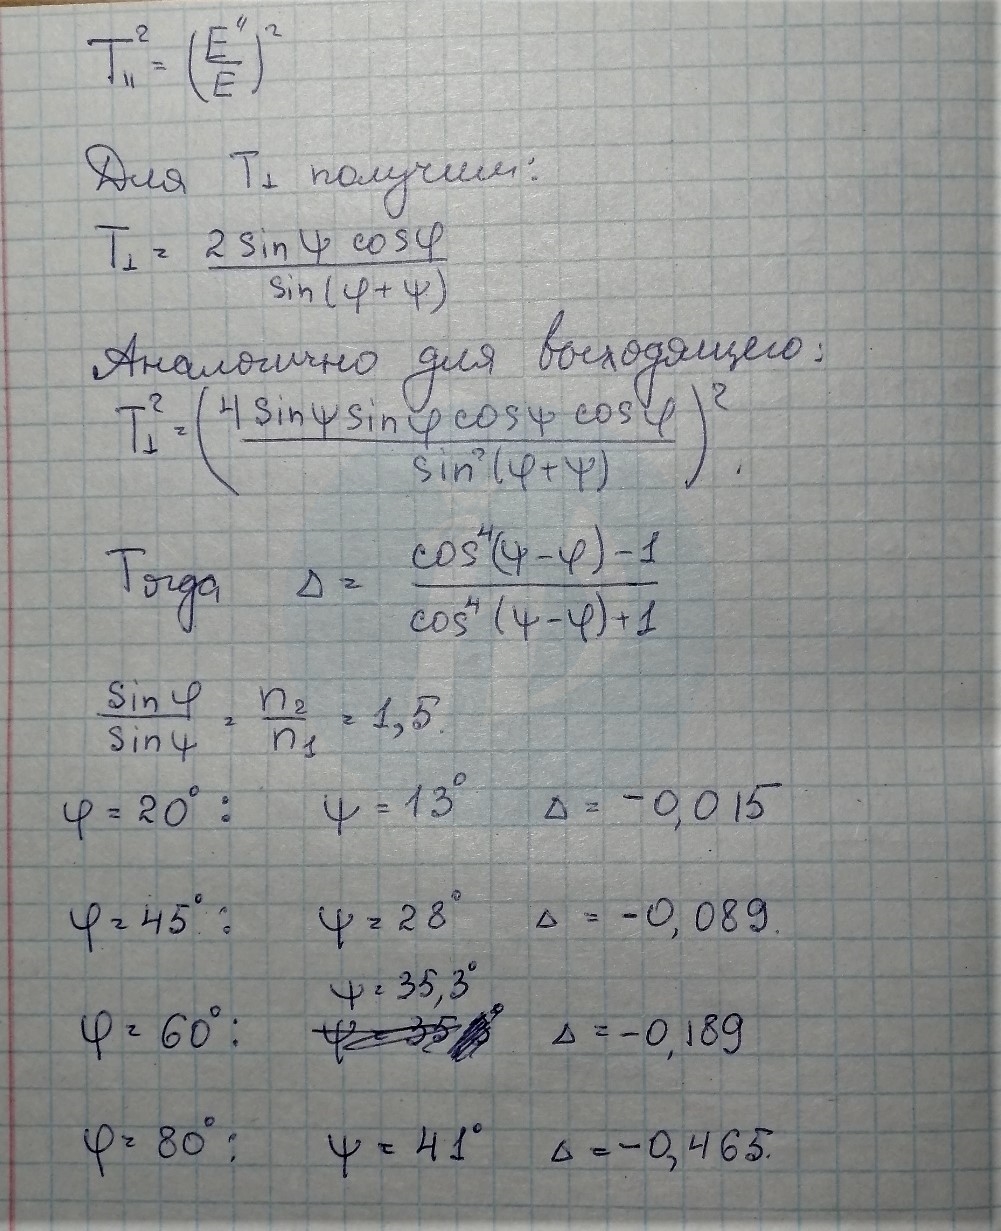 T∥² = (E''/E)²
Для T⊥ получим:
T⊥ = 2 sin ψ cos φ / sin(φ+ψ)
Аналогично для восходящего:
T⊥² = (4 sin ψ sin φ cos ψ cos φ / sin²(φ+ψ))².
Тогда Δ = cos⁴(ψ-φ)-1 / cos⁴(ψ-φ)+1
sin φ / sin ψ = n₂ / n₁ = 1,5.
φ = 20°: ψ = 13° Δ = -0,015
φ = 45°: ψ = 28° Δ = -0,089.
ψ = 35,3°
φ = 60°: Δ = -0,189
φ = 80°: ψ = 41° Δ = -0,465.